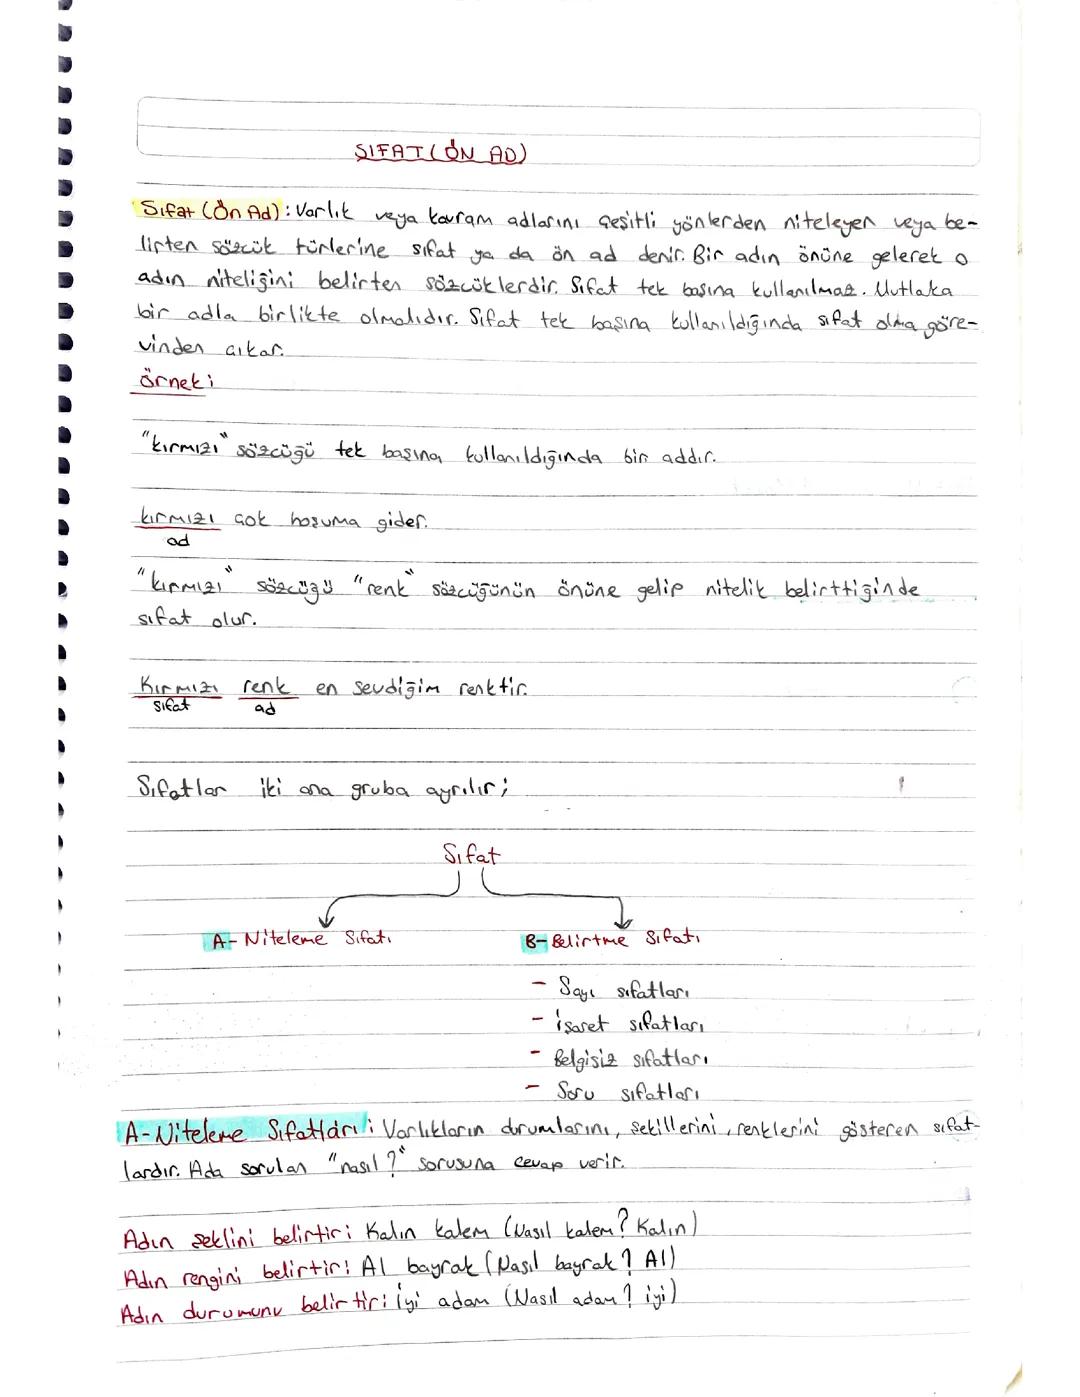 SIFAT (ÖN AD)
Sıfat (Ön Ad): Varlık veya kavram adlarını çeşitli yönlerden niteleyen veya be-
lirten sözcük türlerine sıfat ya da ön ad denir. Bir adın önüne gelerek o
adın niteliğini belirten sözcüklerdir. Sıfat tek başına kullanılmaz. Mutlaka
bir adla birlikte olmalıdır. Sıfat tek başına kullanıldığında sıfat olma göre-
vinden çıkar.
örnek;
"kırmızı" sözcüğü tek başına kullanıldığında bir addır.
kırmızı çok hoşuma gider.
ad
"kırmızı" sözcüğü "renk" sözcüğünün önüne gelip nitelik belirttiğinde
sıfat olur.
Kırmızı renk en sevdiğim renktir.
sıfat ad
Sıfatlar iki ana gruba ayrılır;
Sıfat
A- Niteleme Sıfatı B- Belirtme Sıfatı
- Sayı sıfatları
- işaret sıfatları
- Belgisiz sıfatları
- Soru sıfatları
A- Niteleme Sıfatları: Varlıkların durumlarını, şekillerini, renklerini gösteren sıfat-
lardır. Ada sorulan "nasıl?" sorusuna cevap verir.
Adın şeklini belirtir: Kalın kalem (Nasıl kalem? Kalın)
Adın rengini belirtir: Al bayrak (Nasıl bayrak? Al)
Adın durumunu belirtir: iyi adam (Nasıl adam? iyi)